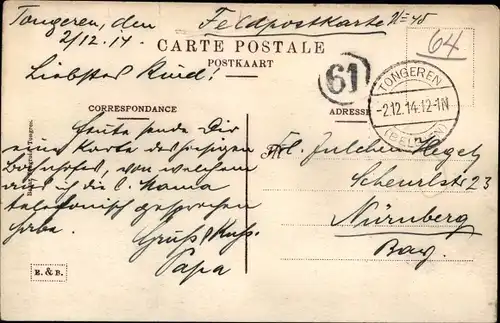 Tongeren, den
2/12.14.
Feldpostkarte No 48
CARTE POSTALE
POSTKAART
64
61
TONGEREN
-2.12.14.12-1N
(BELGIEN)
Liebstes Kind!
CORRESPONDANCE
ADRESSE
Heute sende Dir
eine Karte des hiesigen
Bahnhofes, von welchem
aus ich die l. Mama
telefonisch gesprochen
habe.
Gruß, Kuss.
Papa
Frl. Julchen Hegel
Scheurlstr 23
Nürnberg
Bay.
E. & B.